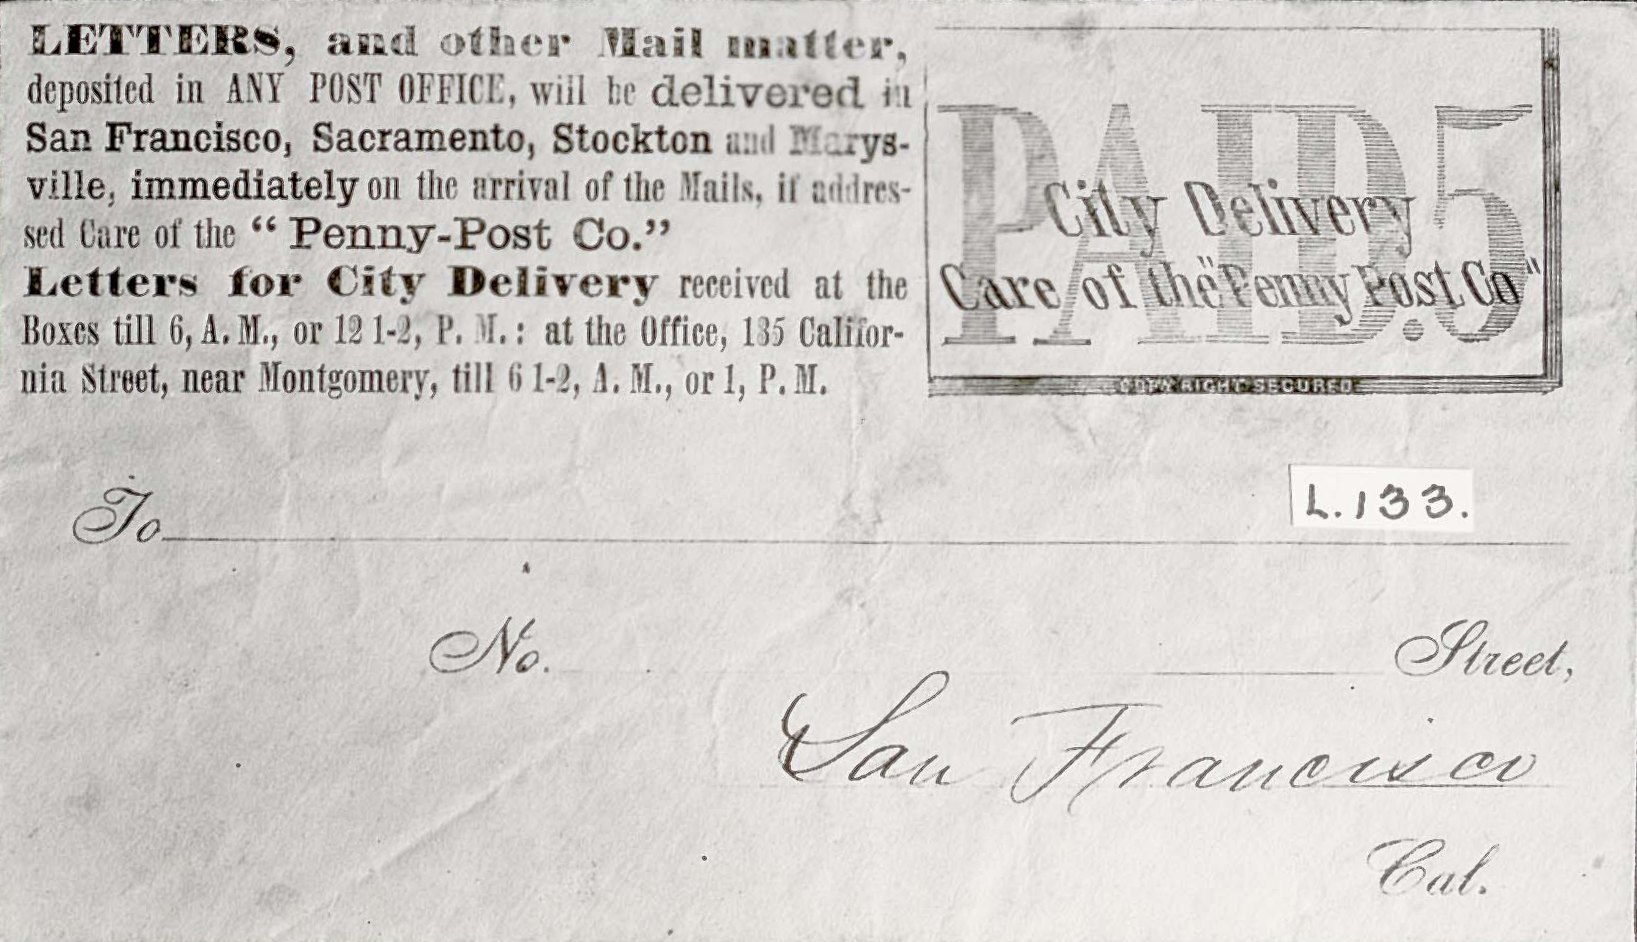 LETTERS, and other Mail matter,
deposited in ANY POST OFFICE, will be delivered in
San Francisco, Sacramento, Stockton and Marys-
ville, immediately on the arrival of the Mails, if addres-
sed Care of the “ Penny-Post Co.”
Letters for City Delivery received at the
Boxes till 6, A. M., or 12 1-2, P. M. : at the Office, 135 Califor-
nia Street, near Montgomery, till 6 1-2, A. M., or 1, P. M.
PAID.5
City Delivery
Care of the "Penny Post Co"
COPY RIGHT SECURED
L.133.
To
No. Street,
San Francisco
Cal.